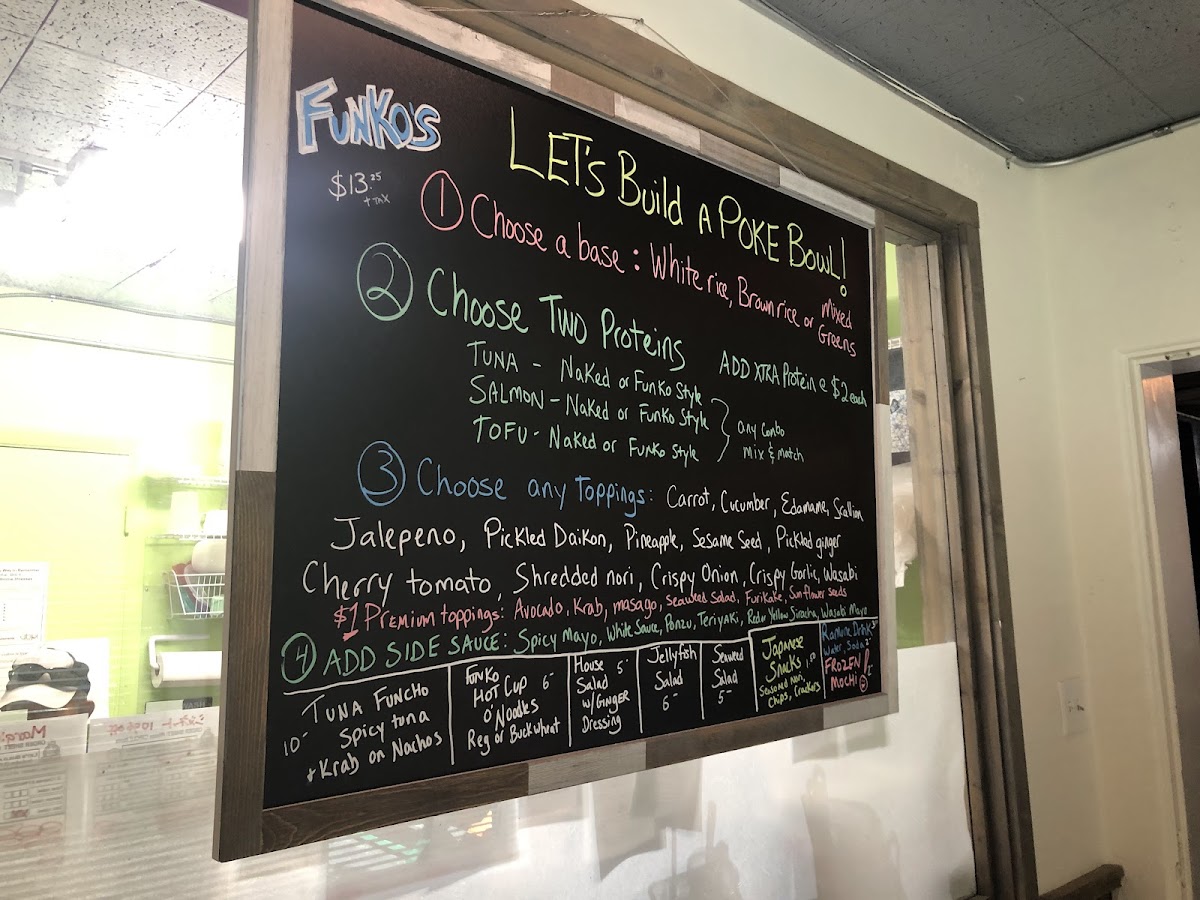 FUNKO'S
$13.25
+ TAX
LET'S Build A POKE BOWL!
① Choose a base: White rice, Brown rice or Mixed Greens
② Choose Two Proteins
TUNA - Naked or Funko Style
SALMON - Naked or Funko Style
TOFU - Naked or Funko Style
any combo
mix & match
ADD XTRA Protein @ $2 each
③ Choose any Toppings: Carrot, Cucumber, Edamame, Scallion
Jalepeno, Pickled Daikon, Pineapple, Sesame Seed, Pickled ginger
Cherry tomato, Shredded nori, Crispy Onion, Crispy Garlic, Wasabi
$1 Premium toppings: Avocado, Krab, masago, Seaweed Salad, Furikake, Sunflower seeds
④ ADD SIDE SAUCE: Spicy Mayo, White Sauce, Ponzu, Teriyaki, Red or Yellow Siracha, Wasabi Mayo
TUNA FUNCHO
Spicy tuna
10-
+ Krab on Nachos
FUNKO
HOT CUP 6-
O' Noodles
Reg or Buckwheat
House 5-
Salad
W/GINGER
Dressing
Jellyfish
Salad
6-
Seaweed
Salad
5-
Japanese
Snacks 1.50
Seasoned Nori,
Chips, Crackers
Ramune Drink 3-
Water, Soda 2-
FROZEN
MOCHI